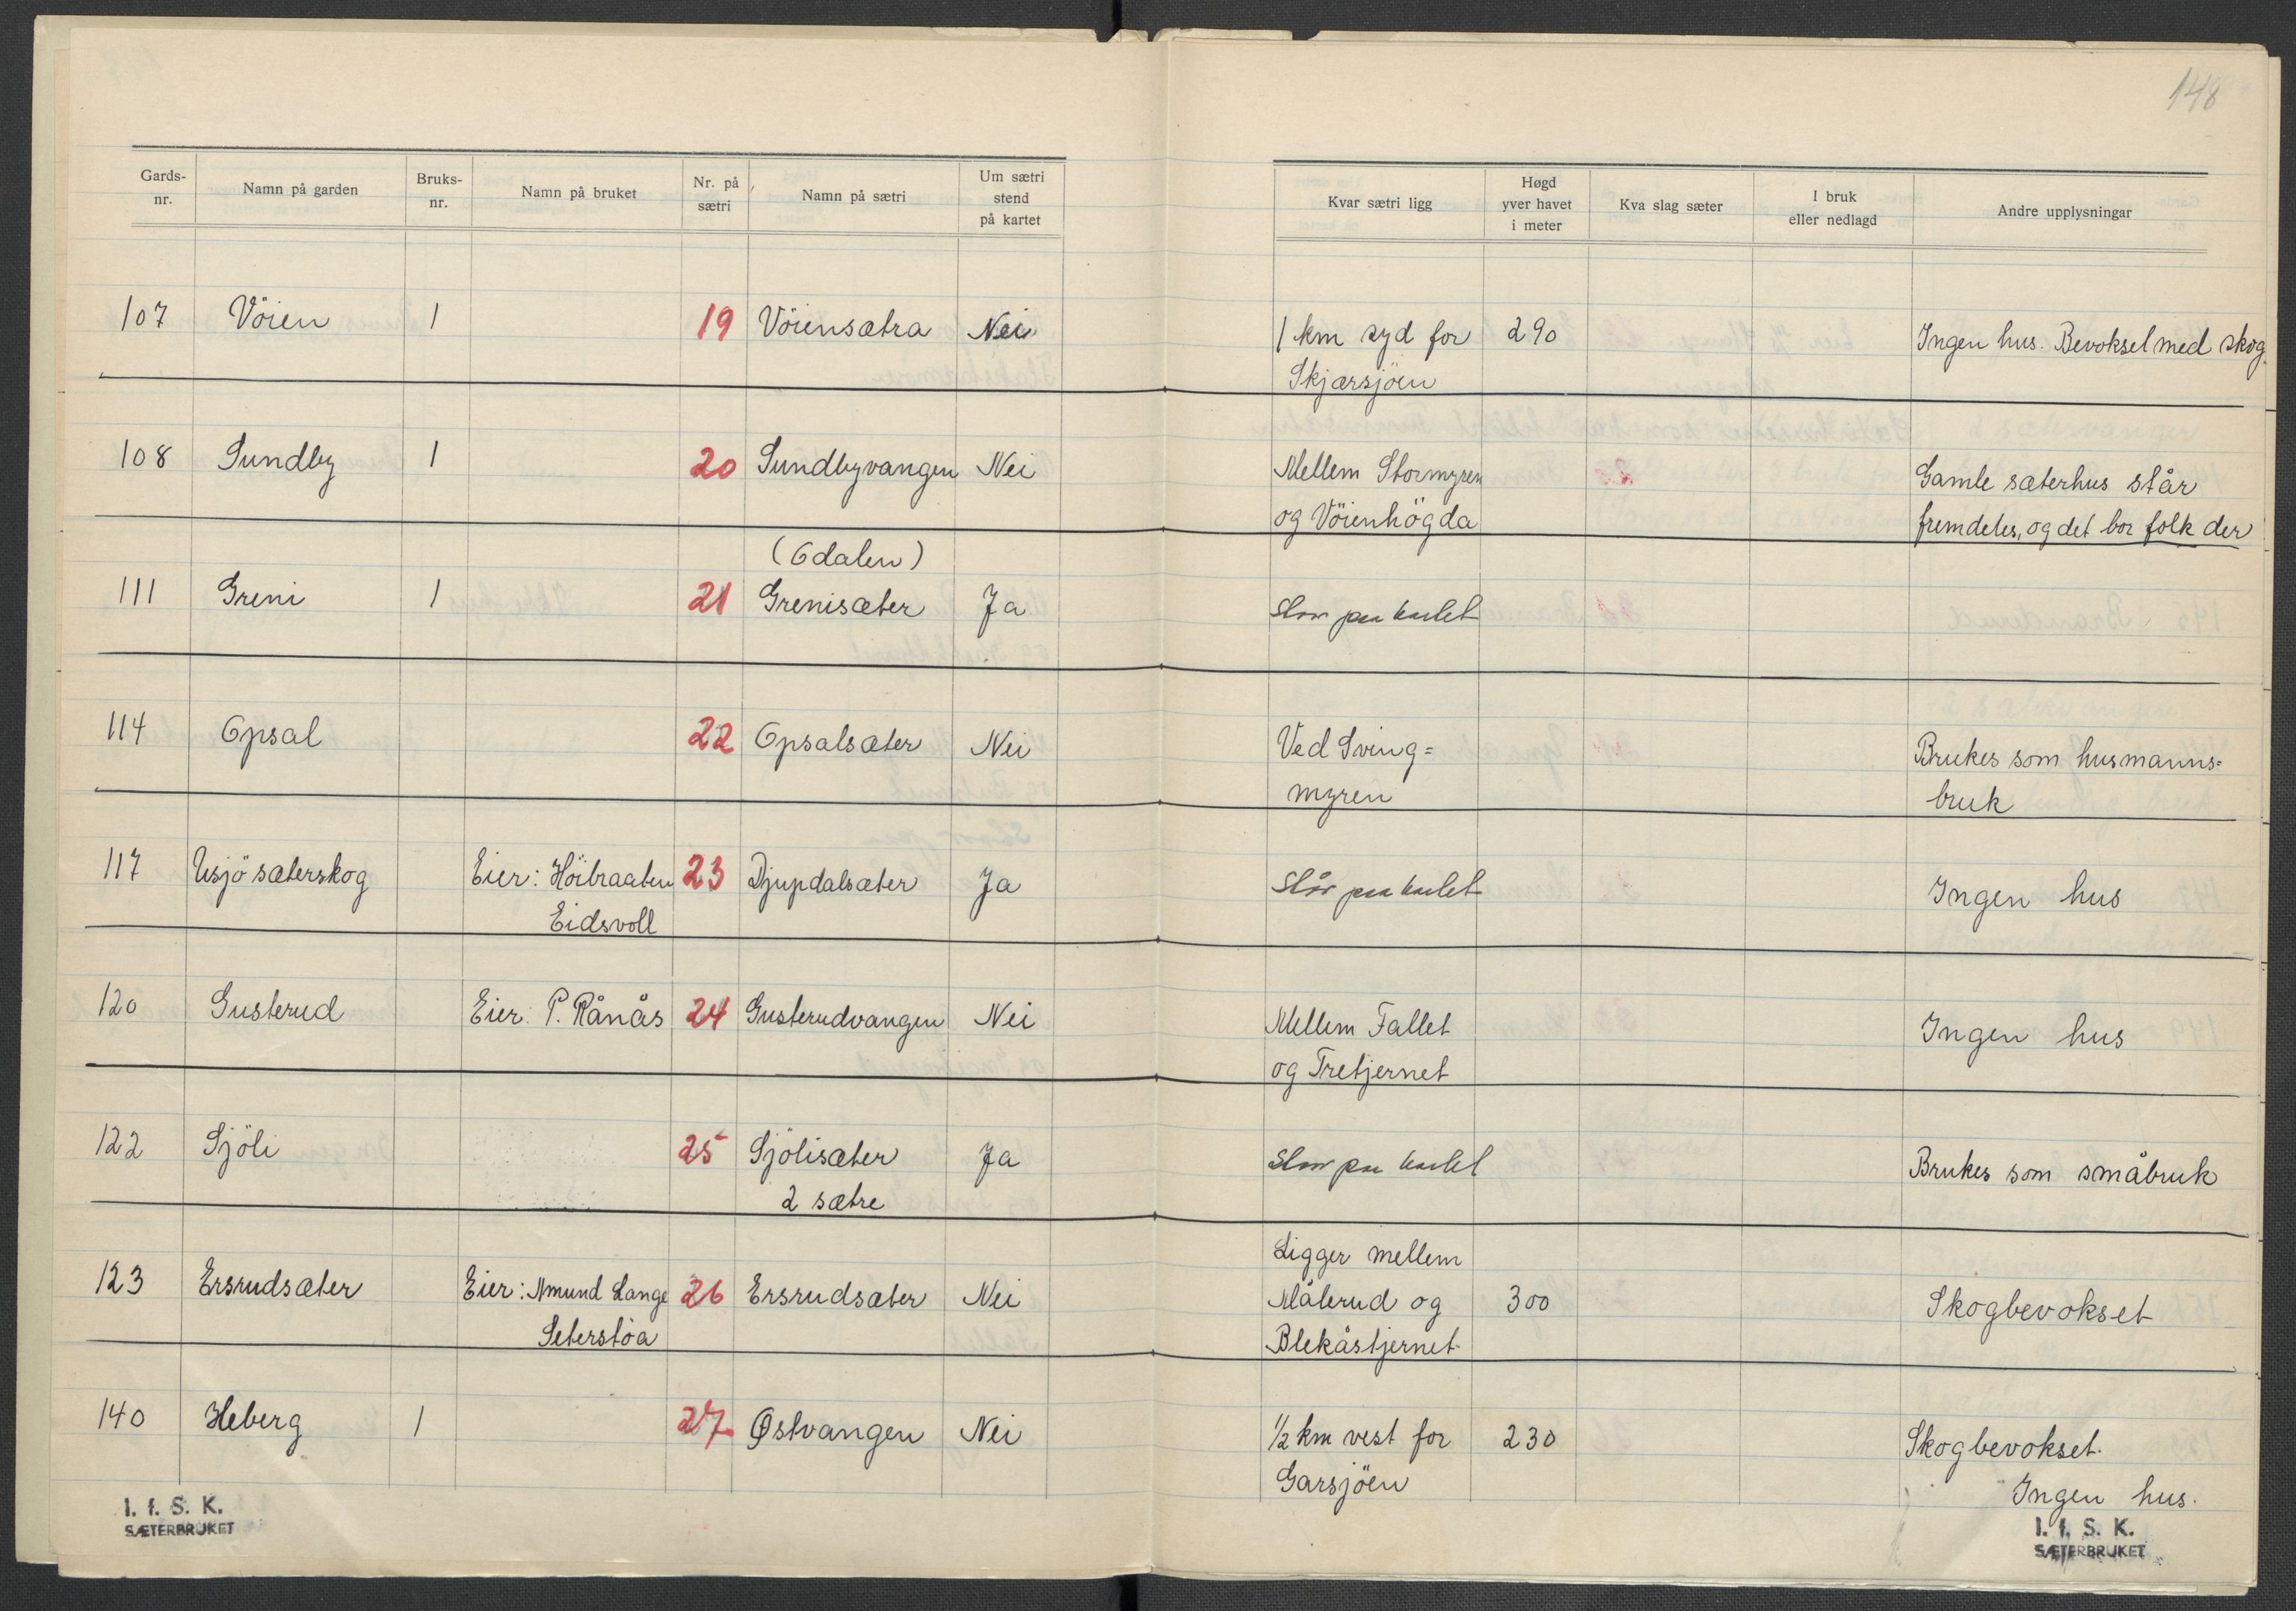 148
Gards-nr. Namn på garden Bruks-nr. Namn på bruket Nr. på sætri Namn på sætri Um sætri stend på kartet Kvar sætri ligg Høgd yver havet i meter Kva slag sæter I bruk eller nedlagd Andre upplysningar
107 Vöien 1 19 Vöiensætra Nei 1 km syd for 290 Ingen hus. Bevokset med skog.
Skjærsjöen
108 Sundby 1 20 Sundbyvangen Nei Mellem Stormyren Gamle sæterhus står
og Vöienhögda fremdeles, og det bor folk der
(Odalen)
111 Greni 1 21 Grenisæter Ja Staar paa kartet
114 Opsal 22 Opsalsæter Nei Ved Sving= Brukes som husmanns=
myren bruk
117 Usjösæterskog Eier: Höibraaten 23 Djupdalsæter Ja Står paa kartet Ingen hus
Eidsvoll
120 Gusterud Eier: P. Rånås 24 Gusterudvangen Nei Mellem Fallet Ingen hus
og Tretjernet
122 Sjöli 25 Sjölisæter Ja Staar paa kartet Brukes som småbruk
2 sætre
Ligger mellem
123 Ersrudsæter Eier: Amund Lange 26 Ersrudsæter Nei Målerud og 300 Skogbevokset
Seterstöa Blekåstjernet
140 Heberg 1 27 Østvangen Nei 1/2 km vest for 230 Skogbevokset.
Garsjöen Ingen hus.
I. f. S. K.
SÆTERBRUKET
I. f. S. K.
SÆTERBRUKET